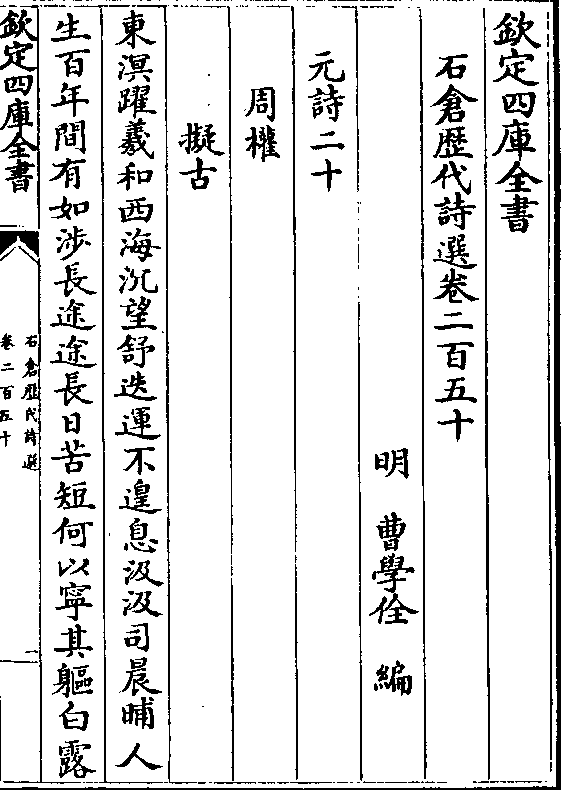 欽定四庫全書
石倉歷代詩選卷二百五十
明 曹學佺 編
元詩二十
周權
擬古
東溟躍羲和西海沉望舒迭運不遑息汲汲司晨晡人
生百年間有如涉長途途長日苦短何以寧其軀白露
欽定四庫全書
石倉歷代詩選
卷二百五十
一